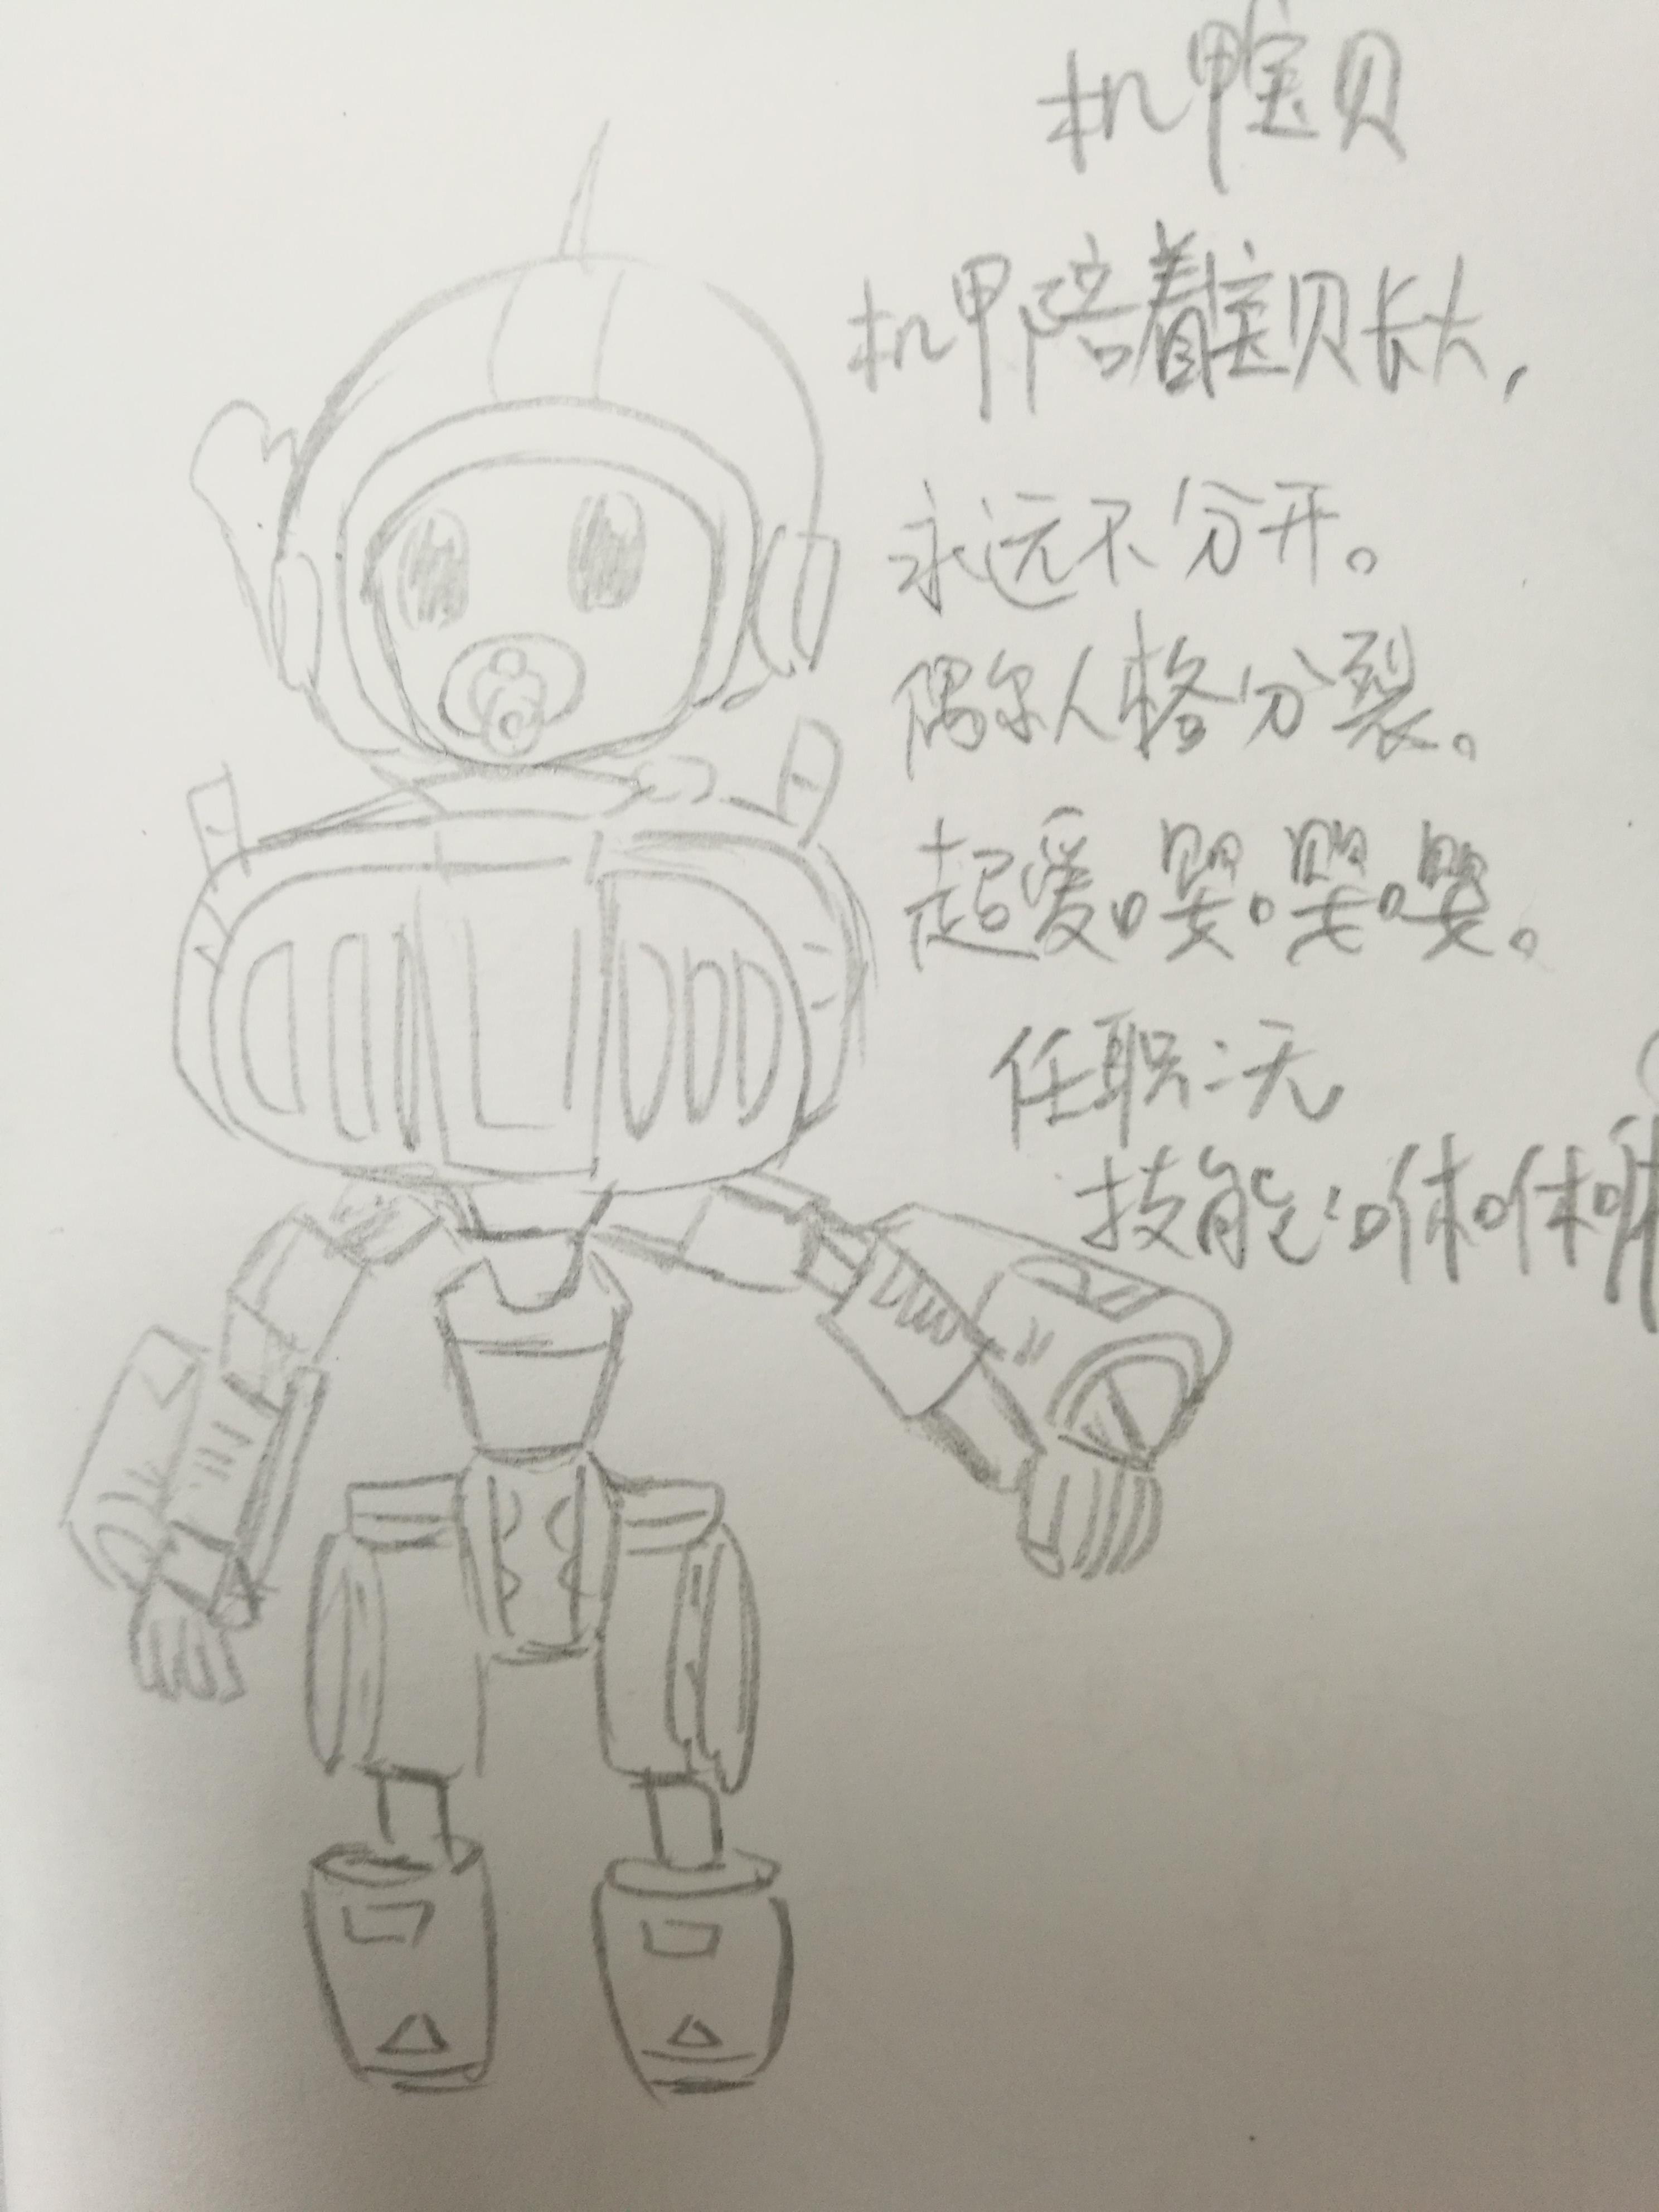 机甲宝贝
机甲陪着宝贝长大，
永远不分开。
偶尔人格分裂。
超爱嘤嘤嘤。
任职：无
技能：咻咻